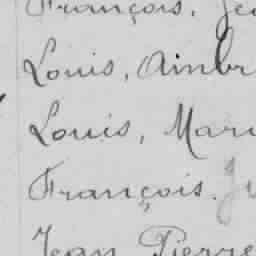 François, Je
Louis, Ambr
Louis, Mari
François. Ju
Jean Pierre